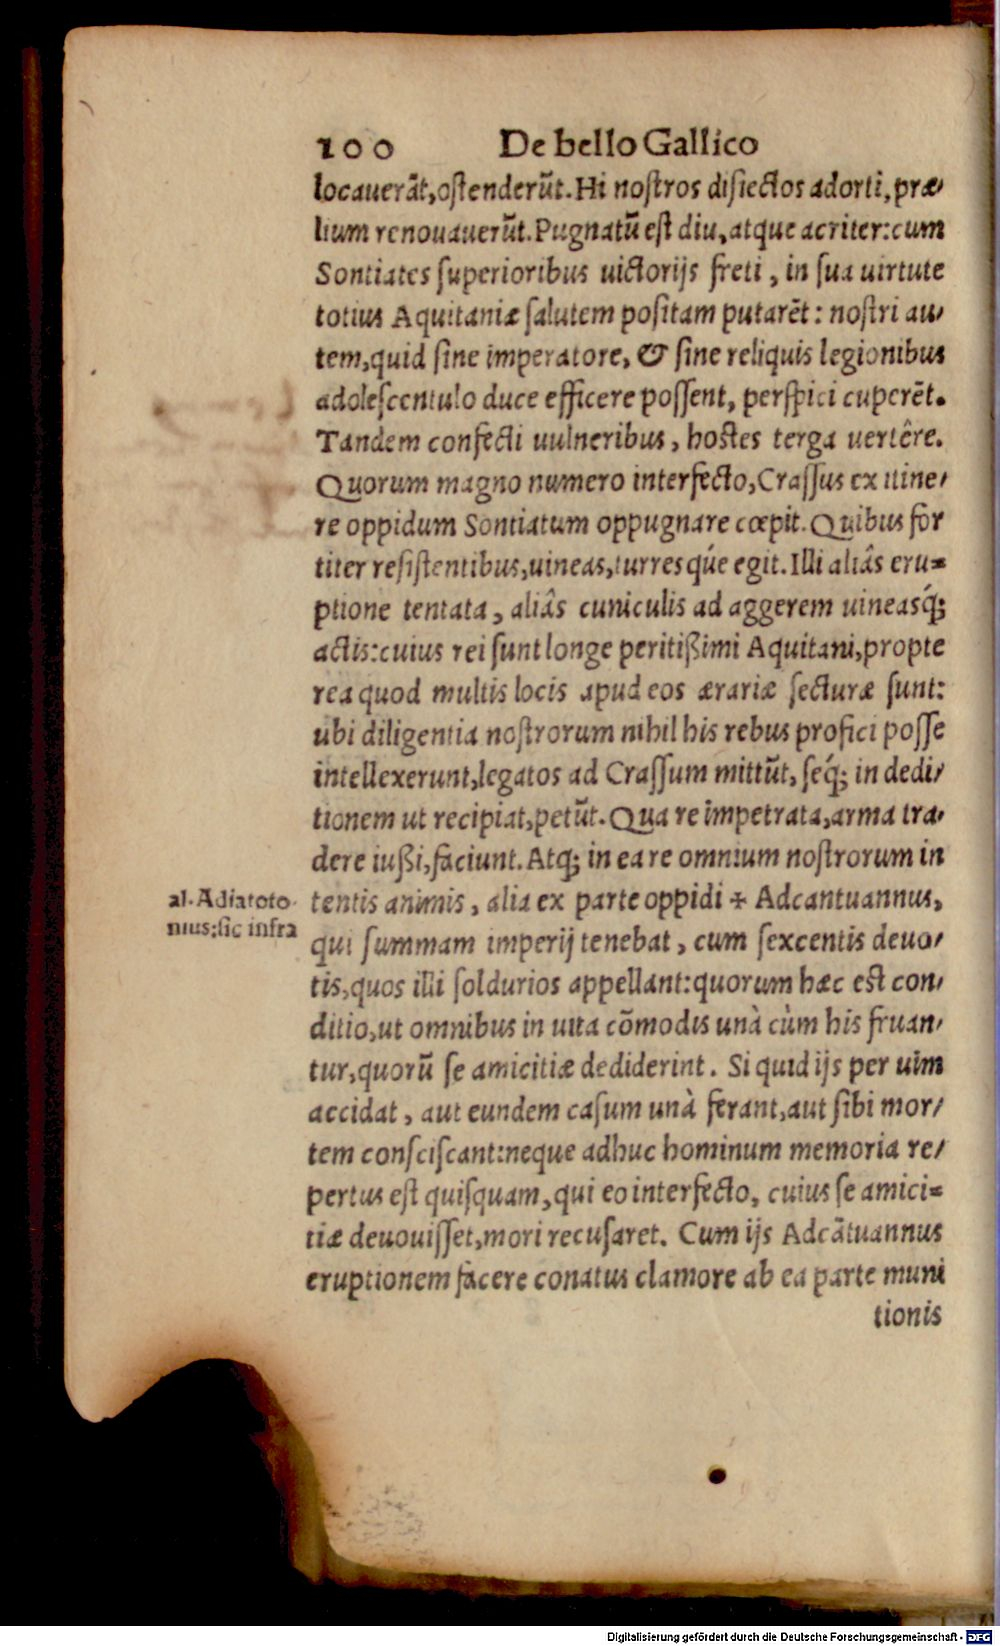 100 De bello Gallico
locauerāt,ostenderūt. Hi nostros disiectos adorti, præ-
lium renouauerūt. Pugnatū est diu, atque acriter: cum
Sontiates superioribus uictorijs freti, in sua uirtute
totius Aquitaniæ salutem positam putarēt: nostri au-
tem, quid sine imperatore, & sine reliquis legionibus
adolescentulo duce efficere possent, perspici cuperēt.
Tandem confecti uulneribus, hostes terga uertêre.
Quorum magno numero interfecto, Crassus ex itine-
re oppidum Sontiatum oppugnare cœpit. Quibus for
titer resistentibus, uineas, turresq́ue egit. Illi aliâs eru-
ptione tentata, aliâs cuniculis ad aggerem uineasq́;
actis: cuius rei sunt longe peritißimi Aquitani, propte
rea quod multis locis apud eos ærariæ secturæ sunt:
ubi diligentia nostrorum nihil his rebus profici posse
intellexerunt, legatos ad Crassum mittūt, seq́; in dedi-
tionem ut recipiat, petūt. Qua re impetrata, arma tra-
dere iußi, faciunt. Atq; in ea re omnium nostrorum in
tentis animis, alia ex parte oppidi ✢ Adcantuannus,
al. Adiatoto-
nius: sic infra
qui summam imperij tenebat, cum sexcentis deuo-
tis, quos illi soldurios appellant: quorum hæc est con-
ditio, ut omnibus in uita cōmodis unà cùm his fruan-
tur, quorū se amicitiæ dediderint. Si quid ijs per uim
accidat, aut eundem casum unà ferant, aut sibi mor-
tem consciscant: neque adhuc hominum memoria re-
pertus est quisquam, qui eo interfecto, cuius se amici-
tiæ deuouisset, mori recusaret. Cum ijs Adcātuannus
eruptionem facere conatus clamore ab ea parte muni
tionis
Digitalisierung gefördert durch die Deutsche Forschungsgemeinschaft - DFG